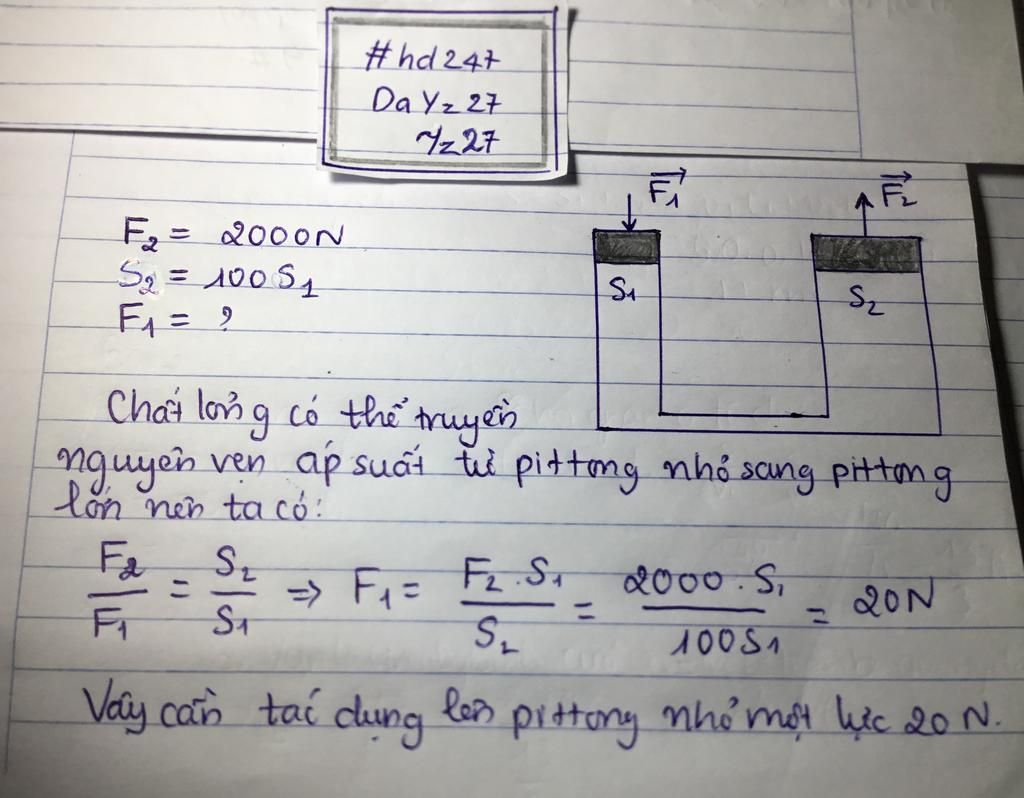 #hd247
DaYz27
Yz27
F₁
F₂
F₂ = 2000N
S₂ = 100S₁
F₁ = ?
S₁
S₂
Chất lỏng có thể truyền
nguyên vẹn áp suất từ pittong nhỏ sang pittong
lớn nên ta có:
F₂/F₁ = S₂/S₁ => F₁ = F₂.S₁/S₂ = 2000.S₁/100S₁ = 20N
Vậy cần tác dụng lên pittong nhỏ một lực 20N.